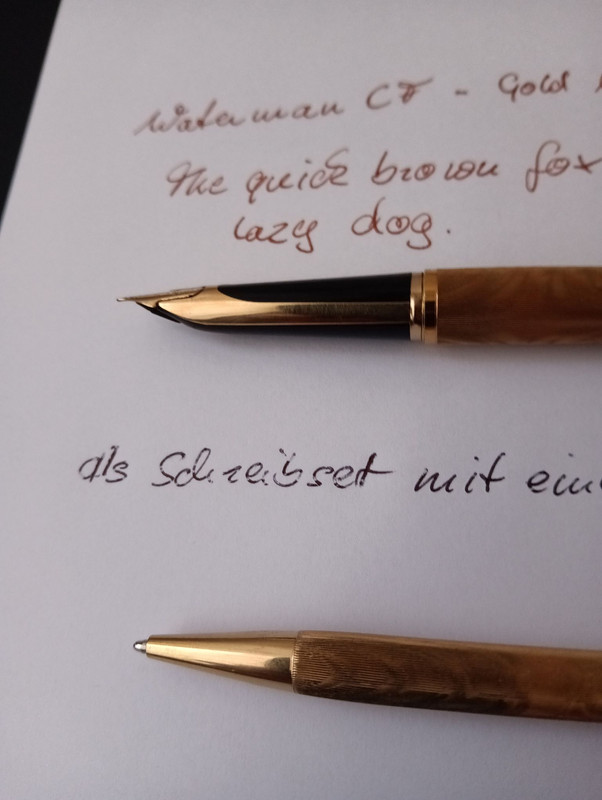 Waterman CF - Gold
The quick brown fox
lazy dog.
als Schreibset mit ein